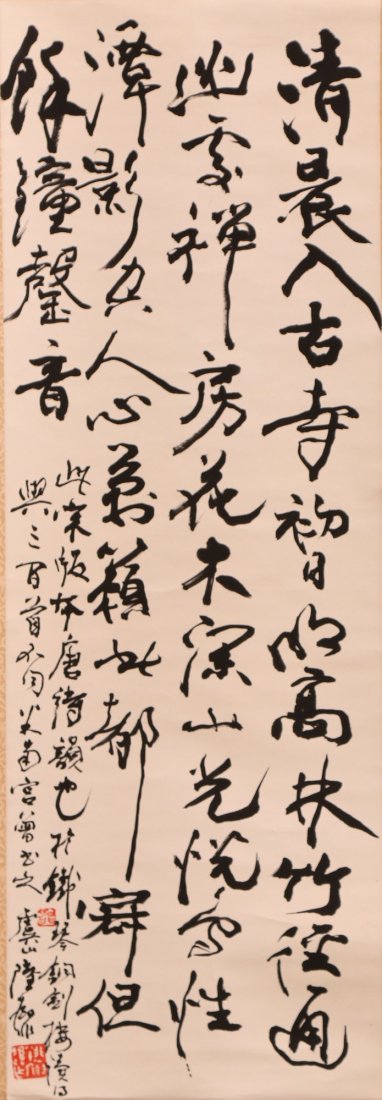 清晨入古寺初日明高林竹徑通
幽處禪房花木深山光悅鳥性
潭影空人心萬籟此都寂但
餘鐘磬音
此宋版本唐詩韻也於鐵琴銅劍樓讀得
與三百首不同米南宮曾書之虞山陸